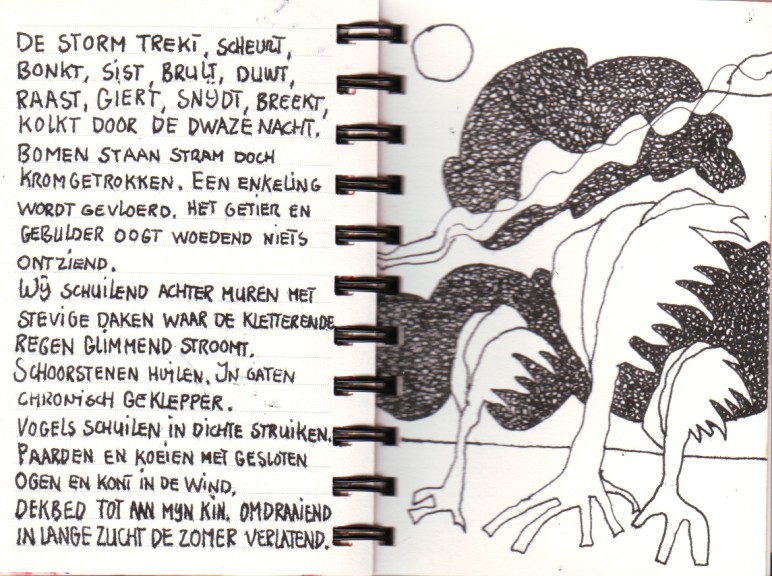 DE STORM TREKT, SCHEURT,
BONKT, SIST, BRULT, DUWT,
RAAST, GIERT, SNIJDT, BREEKT,
KOLKT DOOR DE DWAZE NACHT.
BOMEN STAAN STRAM DOCH
KROMGETROKKEN. EEN ENKELING
WORDT GEVLOERD. HET GETIER EN
GEBULDER OOGT WOEDEND NIETS
ONTZIEND.
WIJ SCHUILEND ACHTER MUREN MET
STEVIGE DAKEN WAAR DE KLETTERENDE
REGEN GLIMMEND STROOMT.
SCHOORSTENEN HUILEN. IN GATEN
CHRONISCH GEKLEPPER.
VOGELS SCHUILEN IN DICHTE STRUIKEN.
PAARDEN EN KOEIEN MET GESLOTEN
OGEN EN KONT IN DE WIND.
DEKBED TOT AAN MIJN KIN. OMDRAAIEND
IN LANGE ZUCHT DE ZOMER VERLATEND.